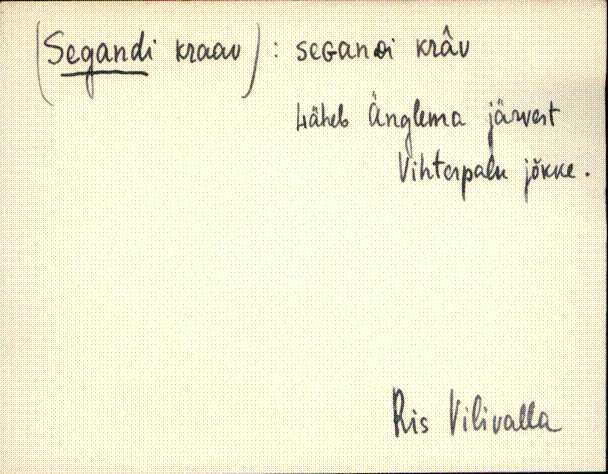 (Segandi kraav) : seGanDi krâv
Läheb Änglema järvest
Vihterpalu jõkke.
Ris Vilivalla